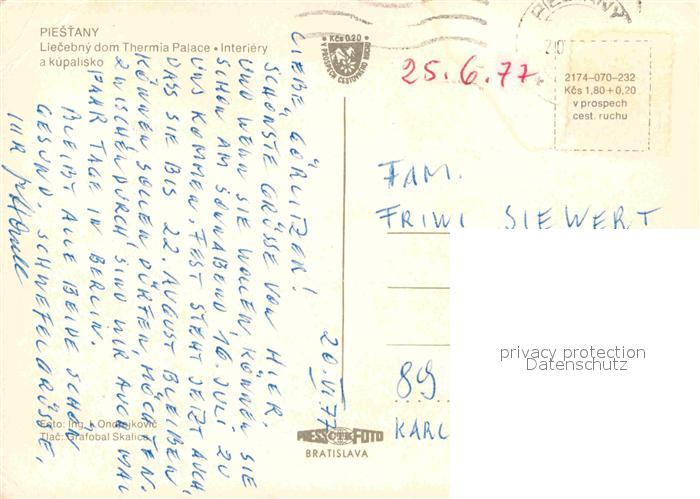 PIEŠŤANY
Liečebný dom Thermia Palace • Interiéry
a kúpalisko
Kčs 0.20
V PROSPECH CESTOVNÉHO RUCHU
PIEŠŤANY
25.6.77
2174-070-232
Kčs 1,80+0,20
v prospech
cest. ruchu
20.VI.77
LIEBE GÖRLITZER!
SCHÖNSTE GRÜSSE VON HIER.
UND WENN SIE WOLLEN, KÖNNEN SIE
SCHON AM SONNABEND 16. JULI ZU
UNS KOMMEN. FEST STEHT JETZT AUCH,
DASS SIE BIS 22. AUGUST BLEIBEN
KÖNNEN SOLLEN DÜRFTEN, MÖCHTEN.
ZWISCHENDURCH SIND WIR AUCH MAL
PAAR TAGE IN BERLIN.
BLEIBT ALLE BEIDE SCHÖN
GESUND, SCHWEFELGRÜSSE,
IHR
FAM.
FRIWI SIEWERT
89
KARL
privacy protection
Datenschutz
Foto: Ing. I. Ondrejkovič
Tlač: Grafobal Skalica
PRESSFOTO
BRATISLAVA